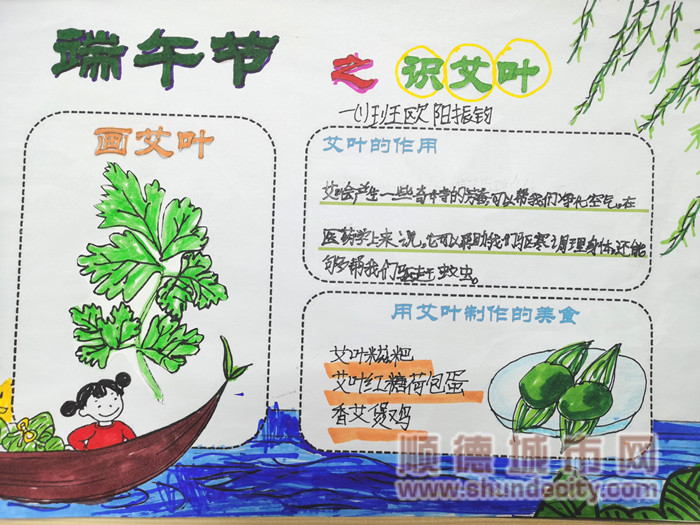 端午节 之 识艾叶
一(1)班 欧阳振钧
画艾叶
艾叶的作用
艾叶会产生一些奇特的芳香可以帮我们净化空气。在
医药学上来说,它可以帮助我们驱寒调理身体,还能
够帮我们驱赶蚊虫。
用艾叶制作的美食
艾叶糍粑
艾叶红糖荷包蛋
香艾煲鸡
顺德城市网
www.shundecity.com